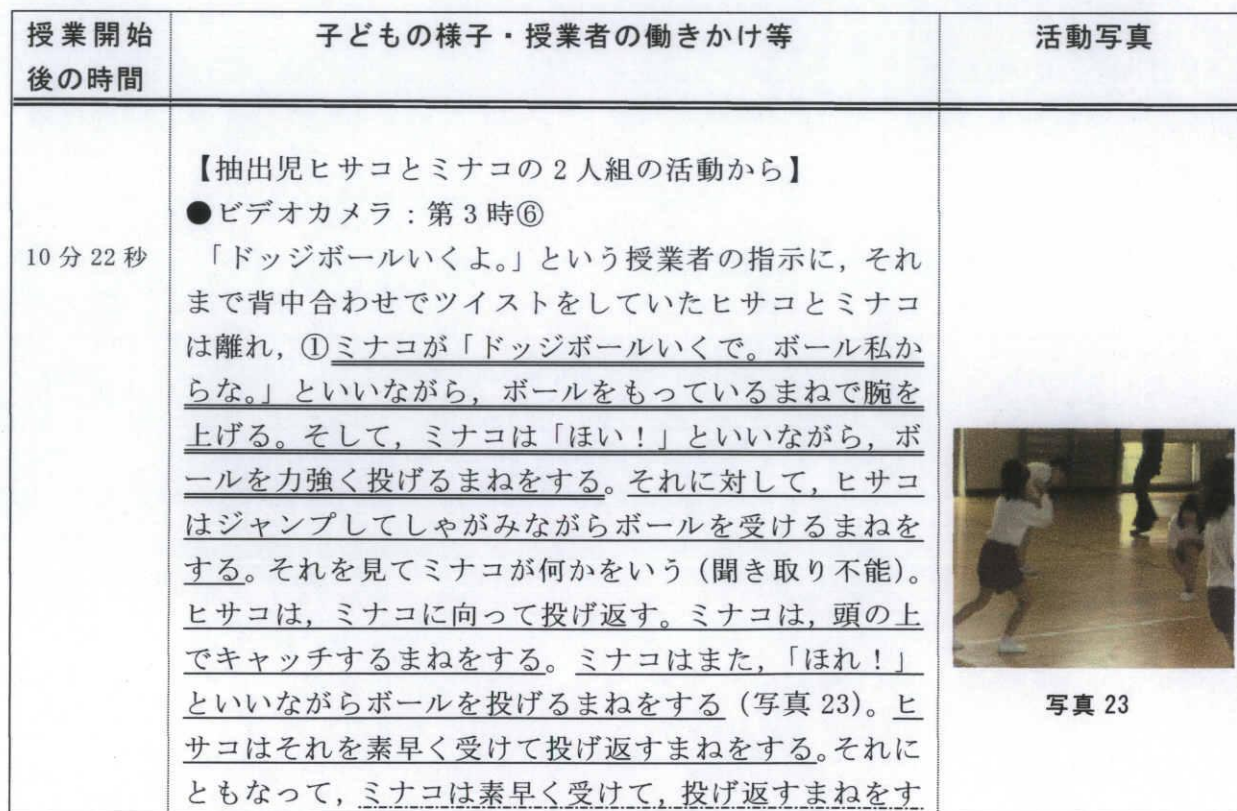 授業開始
後の時間
子どもの様子・授業者の働きかけ等
活動写真
【抽出児ヒサコとミナコの2人組の活動から】
●ビデオカメラ：第3時⑥
10分22秒
「ドッジボールいくよ。」という授業者の指示に，それ
まで背中合わせでツイストをしていたヒサコとミナコ
は離れ，①ミナコが「ドッジボールいくで。ボール私か
らな。」といいながら，ボールをもっているまねで腕を
上げる。そして，ミナコは「ほい！」といいながら，ボ
ールを力強く投げるまねをする。それに対して，ヒサコ
はジャンプしてしゃがみながらボールを受けるまねを
する。それを見てミナコが何かをいう（聞き取り不能）。
ヒサコは，ミナコに向って投げ返す。ミナコは，頭の上
でキャッチするまねをする。ミナコはまた，「ほれ！」
といいながらボールを投げるまねをする（写真23）。ヒ
サコはそれを素早く受けて投げ返すまねをする。それに
ともなって，ミナコは素早く受けて，投げ返すまねをす
写真23